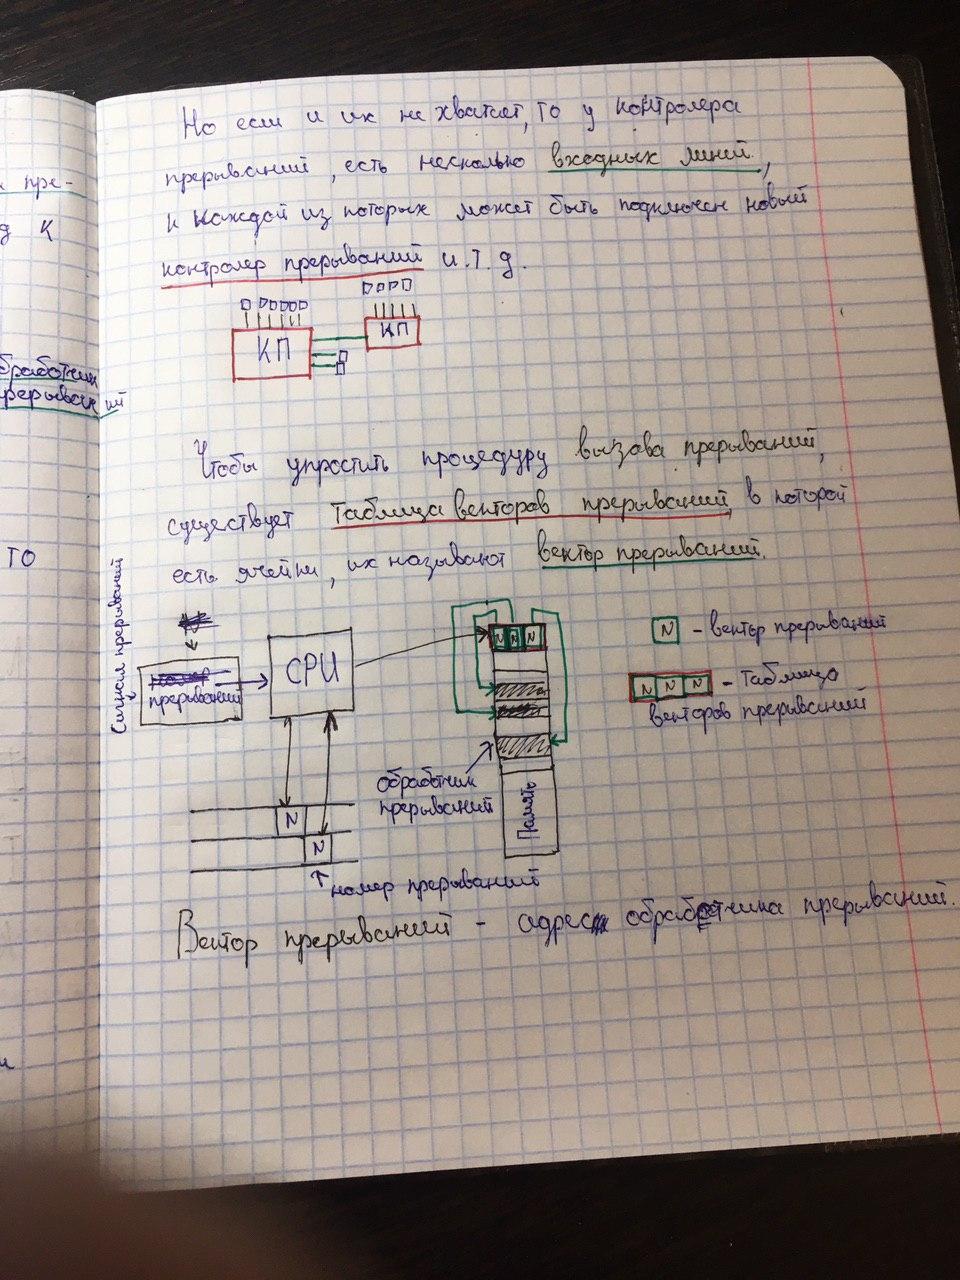 Но если и их не хватает, то у контролера
прерываний, есть несколько входных линей,
к каждой из которых может быть подключен новый
контролер прерываний и.т.д.
КП
КП
Чтобы упростить процедуру вызова прерываний,
существует таблица векторов прерываний, в которой
есть ячейки, их называют вектор прерываний.
Сигнал прерываний
прерываний
CPU
N N N
N - вектор прерываний
N N N - таблица
векторов прерываний
обработчик
прерываний
Память
N
N
номер прерываний
Вектор прерываний - адрес обработчика прерываний.
пре-
д К
обработчик
прерываний
ТО